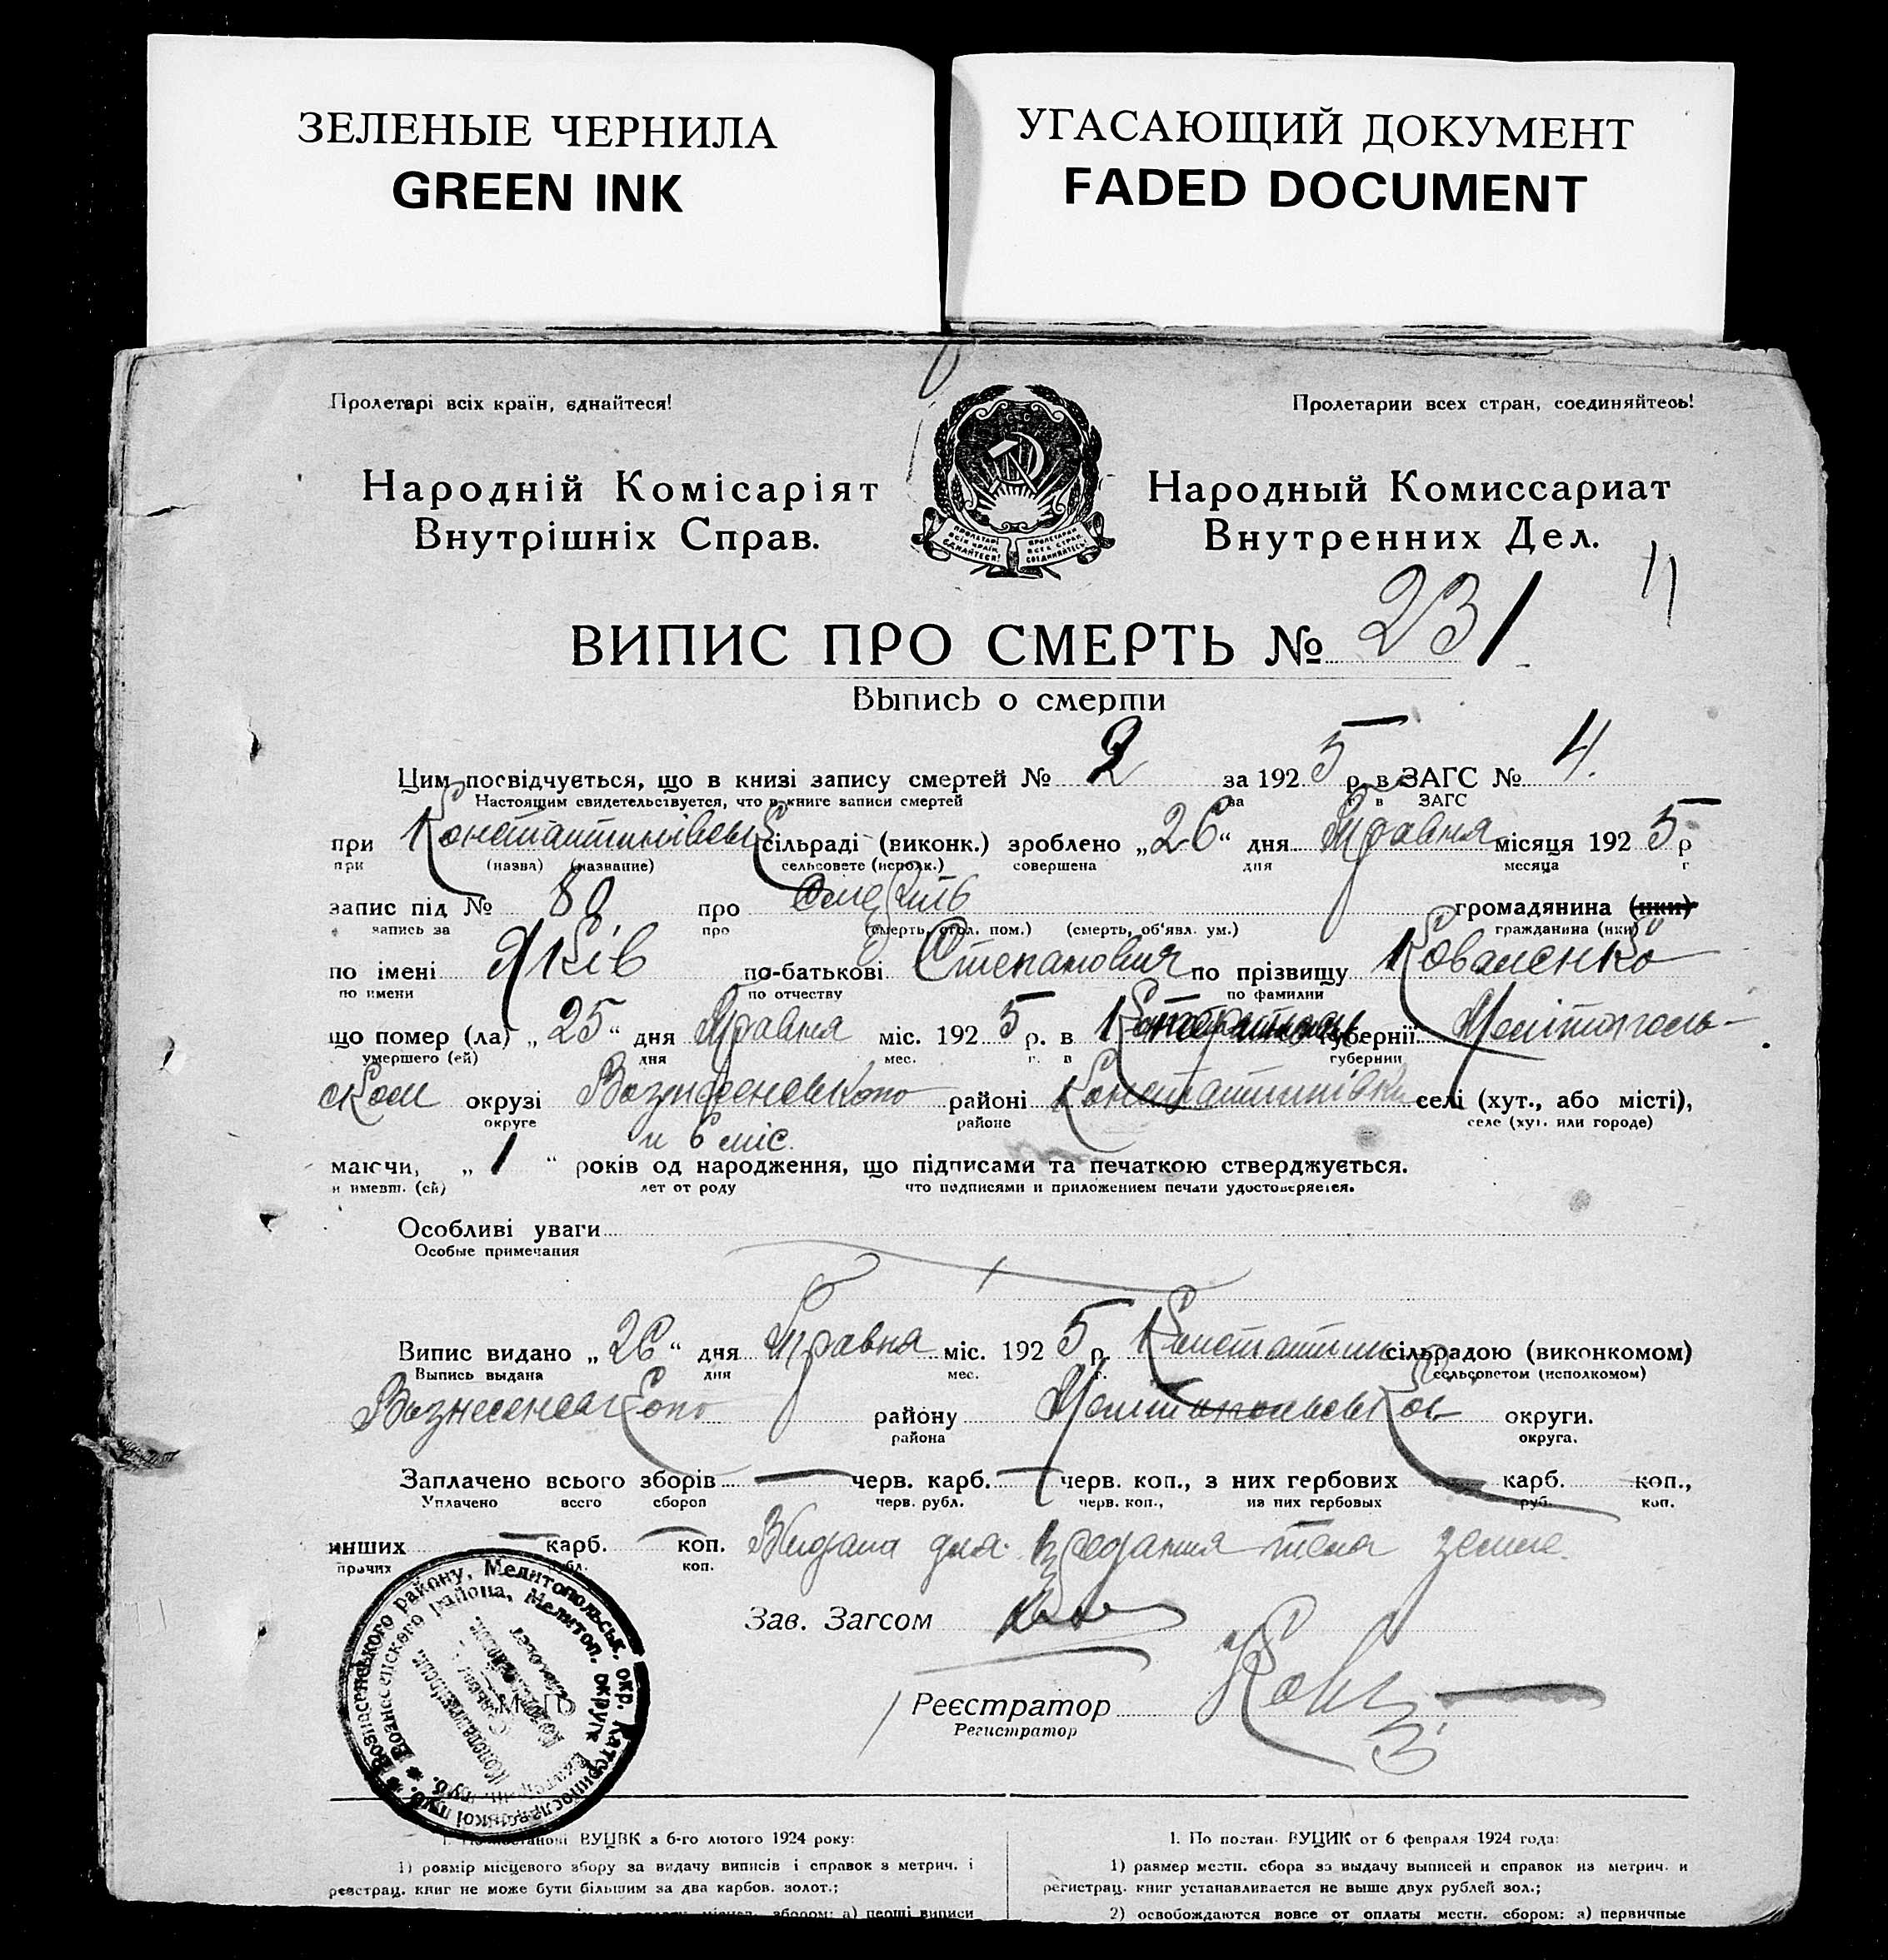 ЗЕЛЕНЫЕ ЧЕРНИЛА
GREEN INK
УГАСАЮЩИЙ ДОКУМЕНТ
FADED DOCUMENT
Пролетарі всіх країн, єднайтеся!
Пролетарии всех стран, соединяйтесь!
Народній Комісаріят
Внутрішніх Справ.
Народный Комиссариат
Внутренних Дел.
ПРОЛЕТАРІ ВСІХ КРАЇН ЄДНАЙТЕСЯ!
ПРОЛЕТАРИИ ВСЕХ СТРАН СОЕДИНЯЙТЕСЬ!
ВИПИС ПРО СМЕРТЬ № 231
Выпись о смерти
Цим посвідчується, що в книзі запису смертей № 2 за 1925 р. в ЗАГС № 4.
Настоящим свидетельствуется, что в книге записи смертей за г. в ЗАГС
при Константинівській сільраді (виконк.) зроблено „26“ дня Травня місяця 1925 р
при (назва) (название) сельсовете (исполк.) совершена дня месяца г
запис під № 80 про смерть громадянина (нки)
запись за про (смерть, огол. пом.) (смерть, об'явл. ум.) гражданина (нки)
по імені Яків по-батькові Степановия по прізвищу Коваленко
по имени по отчеству по фамилии
що помер (ла) „25“ дня Травня міс. 1925 р. в губернії Мелітополь-
умершего (ей) дня мес. г. в губернии
ском окрузі Вознесенського районі Константинівки селі (хут., або місті),
округе районе селе (хут. или городе)
и 6 міс.
маючи, „1“ років од народження, що підписами та печаткою стверджується.
и имевш. (ей) лет от роду что подписями и приложением печати удостоверяется.
Особливі уваги
Особые примечания
Випис видано „26“ дня Травня міс. 1925 р. Константин сільрадою (виконкомом)
Выпись выдана дня мес. г. сельсоветом (исполкомом)
Вознесенського району Мелітопольської округи.
района округа.
Заплачено всього зборів — черв. карб. — черв. коп., з них гербових — карб. коп.,
Уплачено всего сборов черв. рубл. черв. коп., из них гербовых руб. коп.
инших — карб. — коп. Видана для предания тела земле.
прочих рубл. коп.
Зав. Загсом
Реєстратор
Регистратор
М. П.
Вознесенського району, Мелитопольськ. окр. Катеринославської губ.
Вознесенского района, Мелитоп. округа Екатерин. губ.
1. По постанові ВУЦВК з 6-го лютого 1924 року:
1) розмір місцевого збору за видачу виписів і справок з метрич. і
реєстрац. книг не може бути більшим за два карбов. золот.;
збором: а) перші виписи
1. По постан. ВУЦИК от 6 февраля 1924 года:
1) размер местн. сбора за выдачу выписей и справок из метрич. и
регистрац. книг устанавливается не выше двух рублей зол.;
2) освобождаются вовсе от оплаты местн. сбором: а) первичные